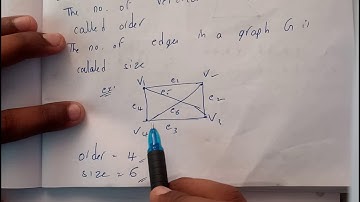 The no. of
called order
The no. of edges in a graph G is
called size
ex:
V1 e1 V2
e5
e4 e2
e6
V4 e3 V3
order = 4
size = 6